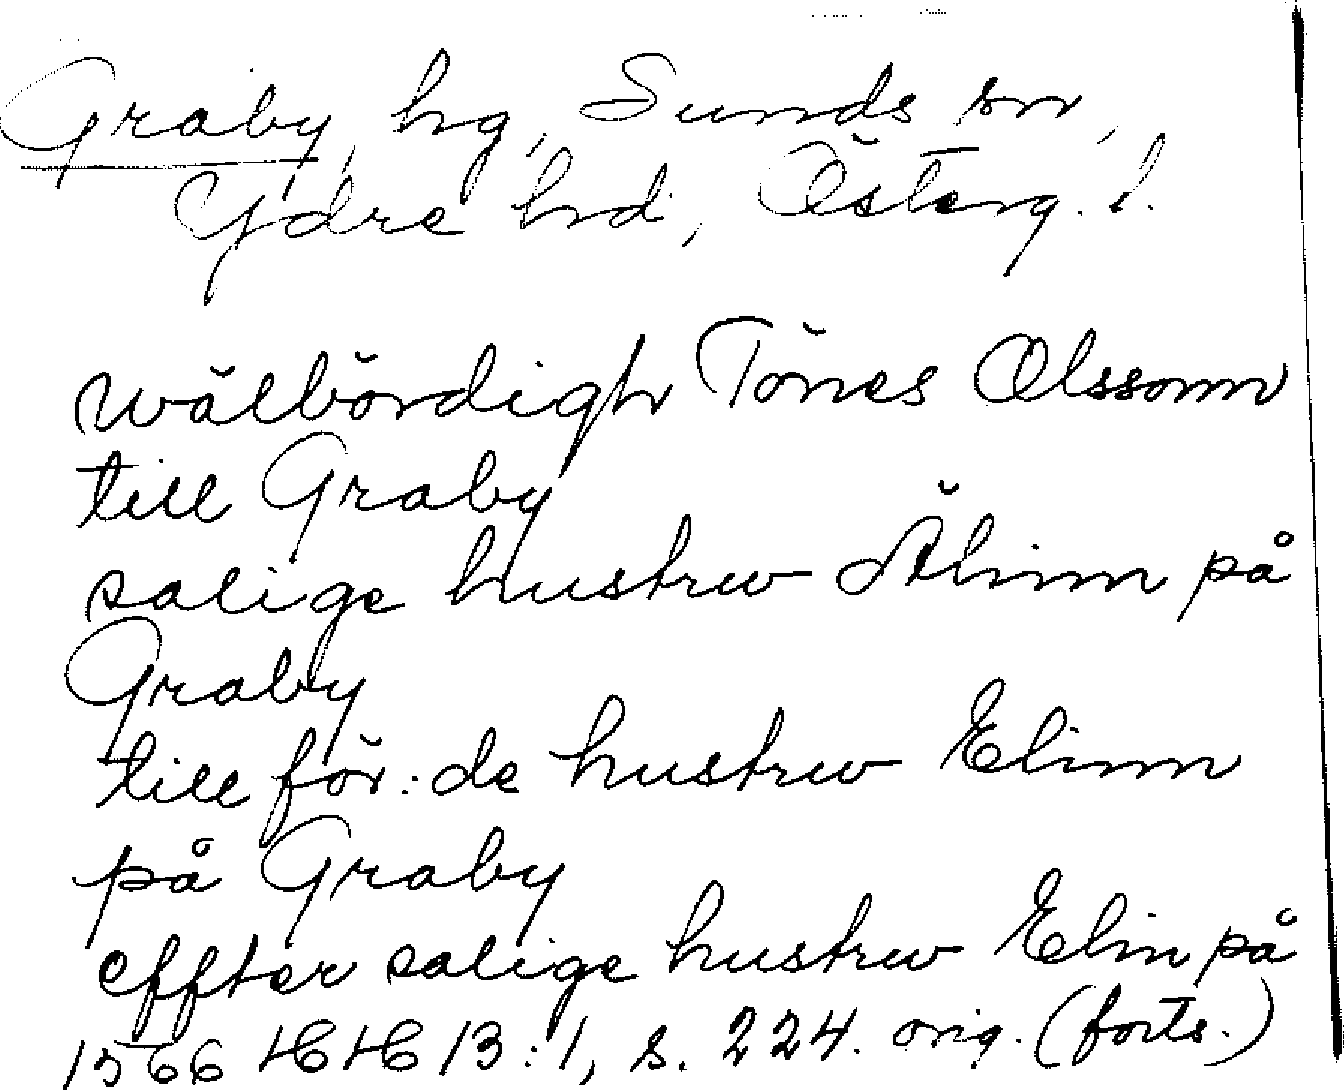 Graby, hg, Sunds sn,
Ydre hd, Österg. l.
wälbördigh Tönes Olssonn
till Graby
salige hustrw Älinn på
Graby
till för:de hustrw Elinn
på Graby
effter salige hustrw Elin på
1566 HH 13:1, s. 224. orig. (forts.)